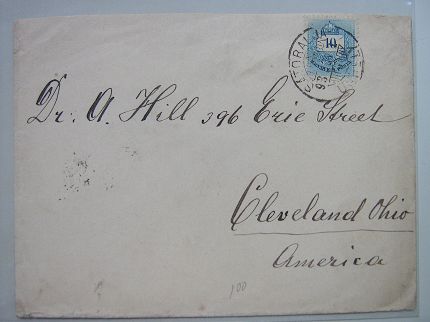 10
Dr. A. Hill 396 Erie Street
Cleveland Ohio
America
100